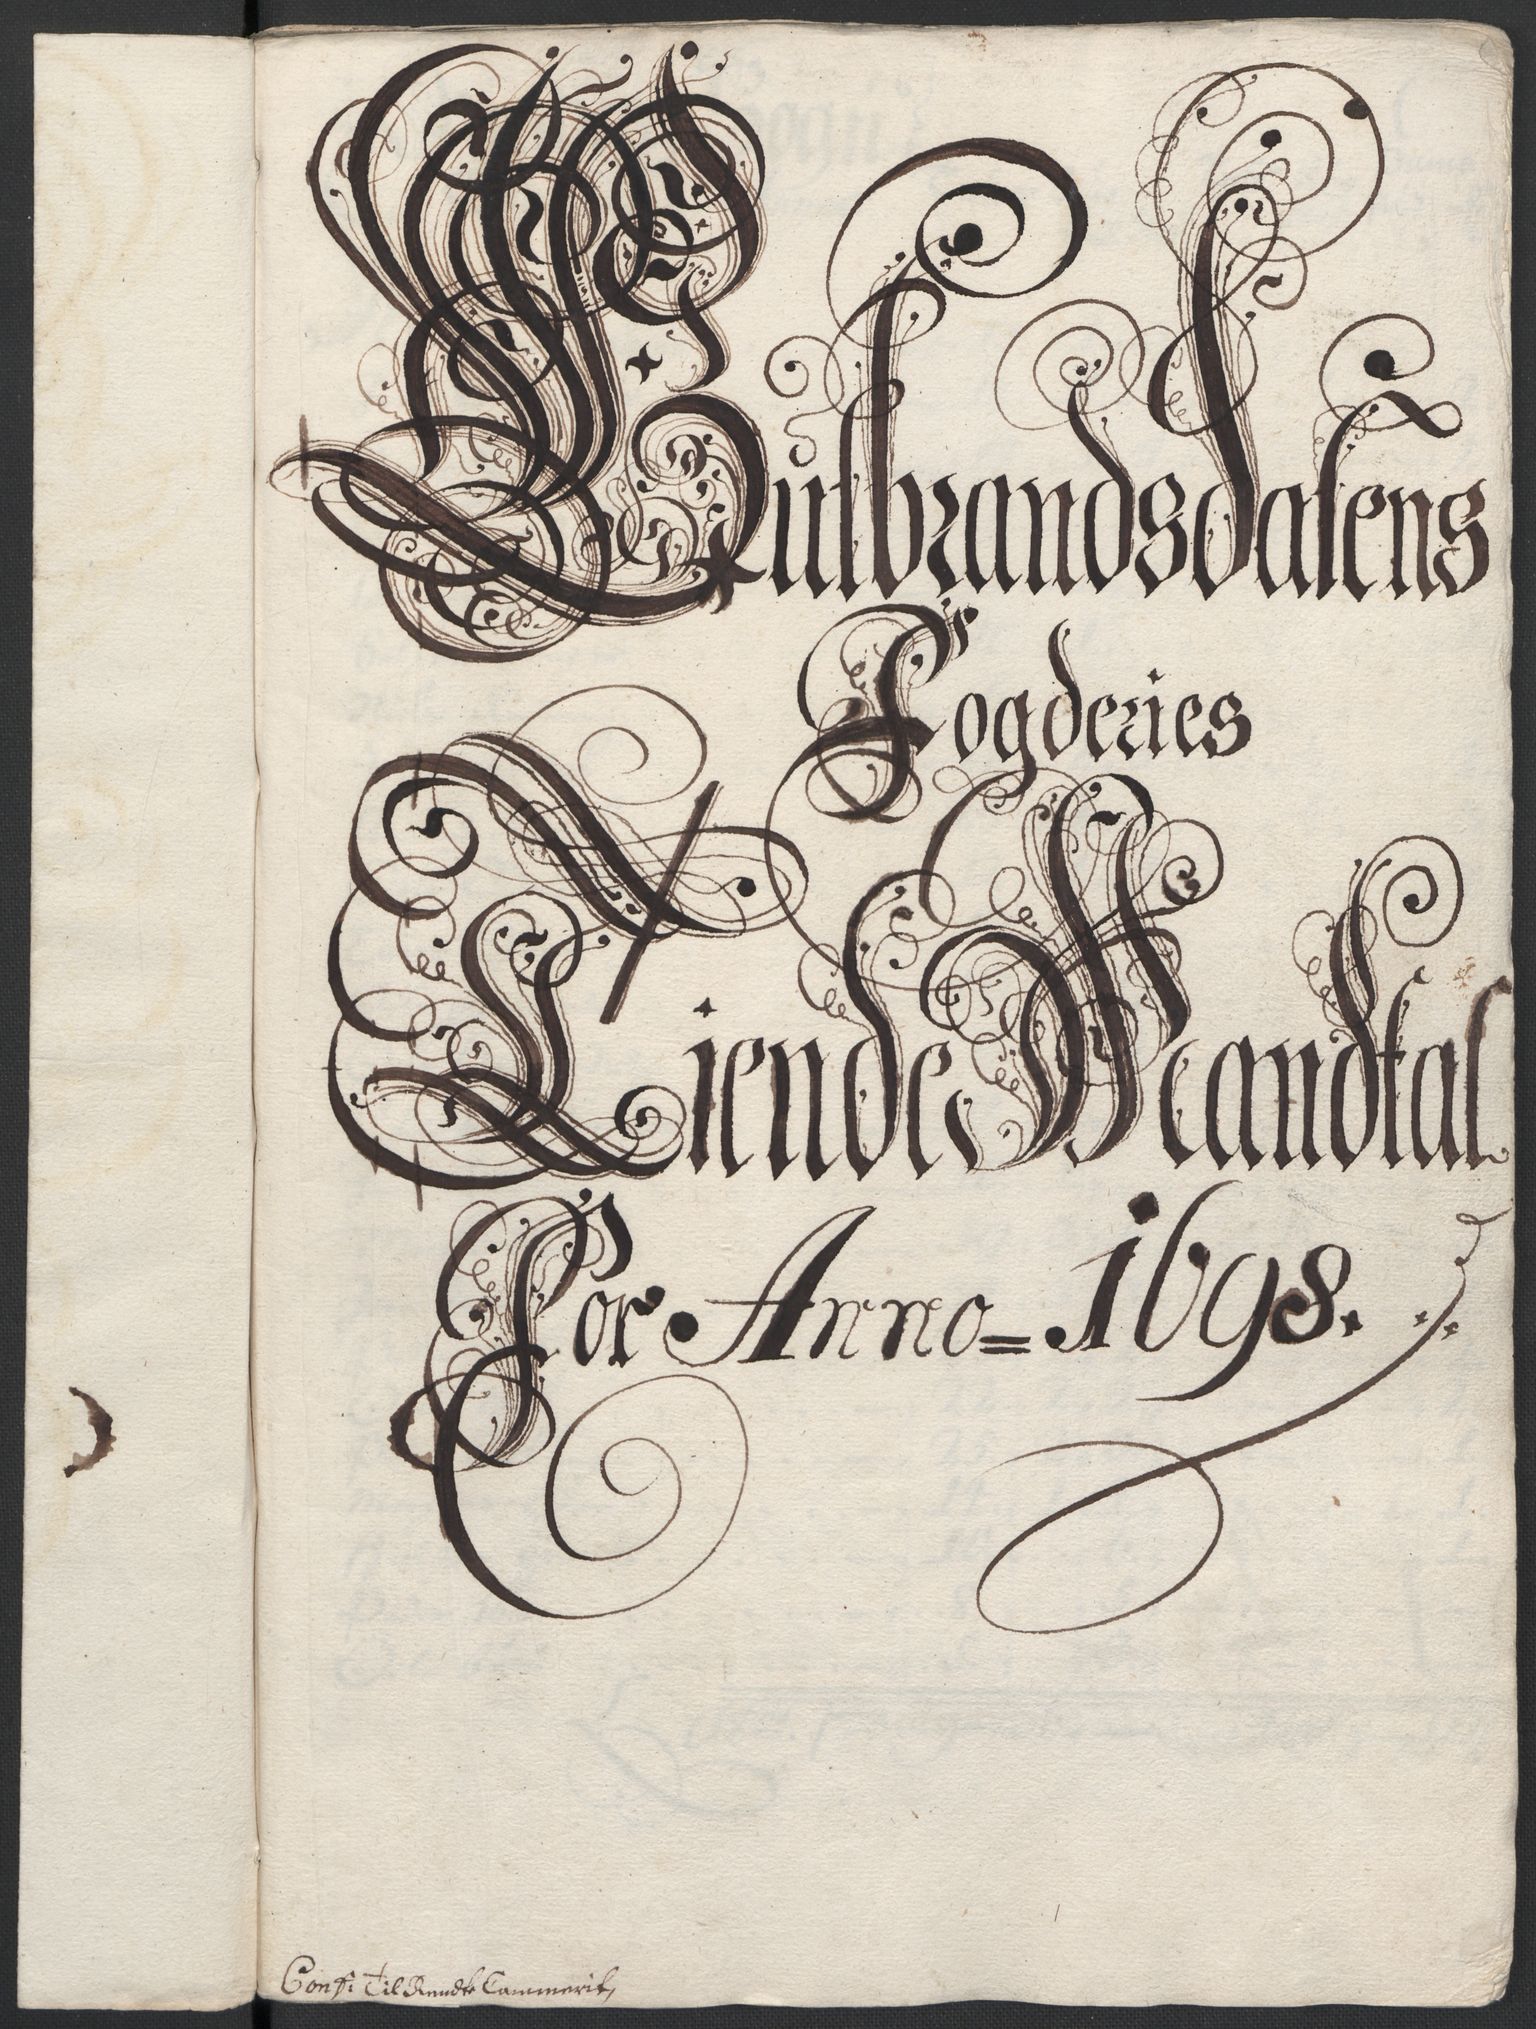 Gulbrandsdalens
Fogderies
Tiende Mandtal
For Anno = 1698.
Conf: Til Rendte Cammerit,